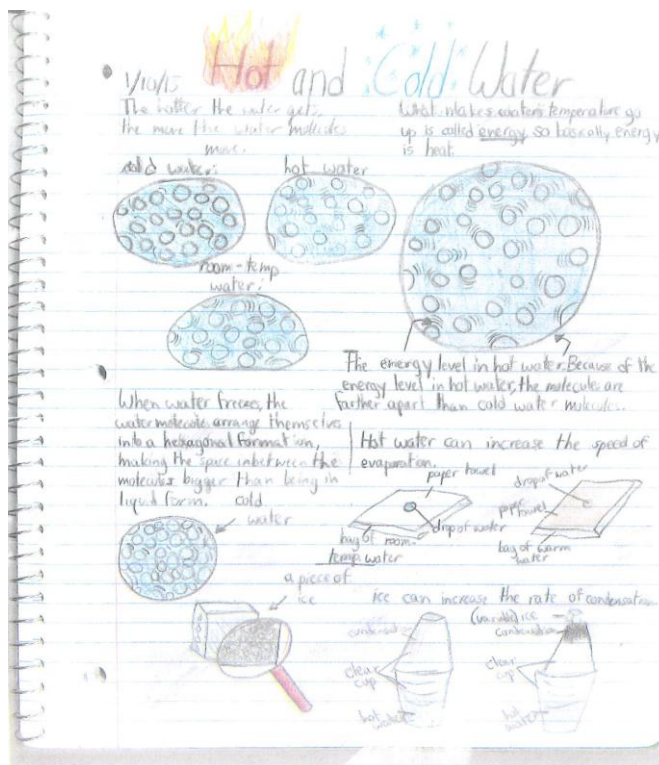 1/10/15 Hot and Cold Water
The hotter the water gets,
the more the water molecules
move.
What makes water's temperature go
up is called energy, so basically energy
is heat
cold water:
hot water
room-temp
water:
The energy level in hot water. Because of the
energy level in hot water, the molecules are
farther apart than cold water molecules.
When water freezes, the
water molecules arrange themselves
into a hexagonal formation,
making the space inbetween the
molecules bigger than being in
liquid form.
cold
water
a piece of
ice
Hot water can increase the speed of
evaporation.
paper towel
drop of water
bag of room-
temp water
drop of water
paper
towel
bag of warm
water
ice can increase the rate of condensation
clear
cup
hot water
(variable) ice
condensation
clear
cup
hot
water